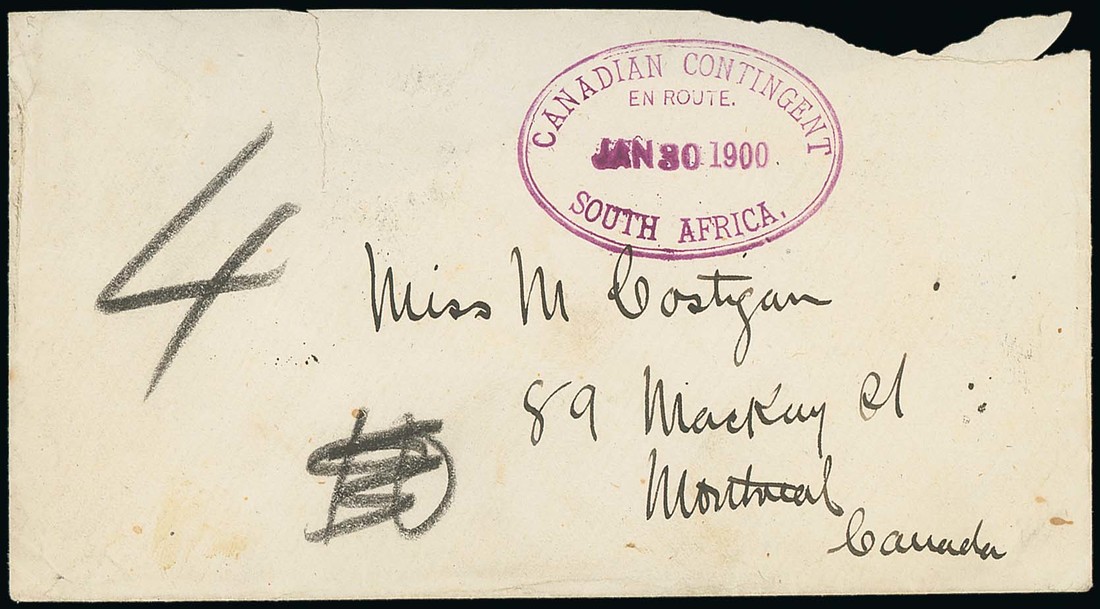 CANADIAN CONTINGENT
EN ROUTE.
JAN 30 1900
SOUTH AFRICA.
4
Miss M Costigan
89 Mackay St
Montreal
Canada